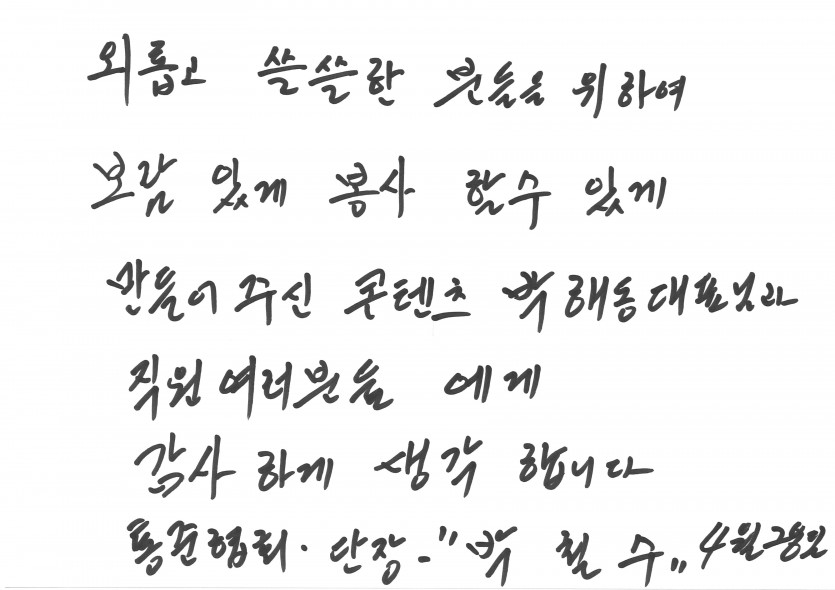 외롭고 쓸쓸한 분들을 위하여
보람 있게 봉사 할수 있게
만들어 주신 콘텐츠 박해동대표님과
직원 여러분들 에게
감사 하게 생각 합니다
단장-"박 철 수" 4월28일